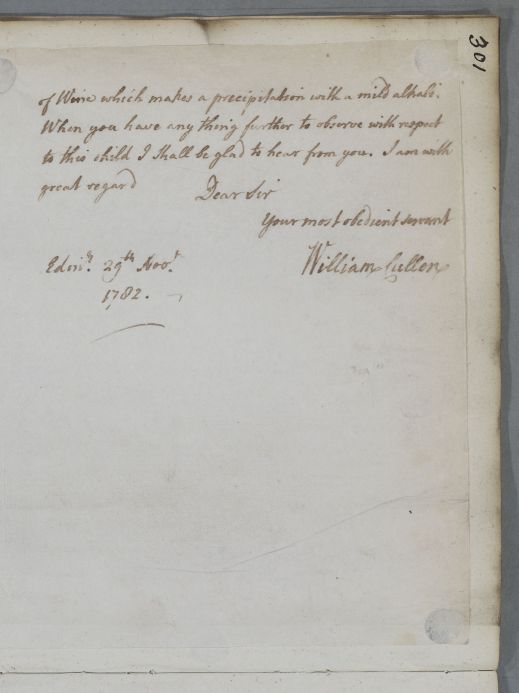 301
of Wine which makes a precipitation with a mild alkali.
When you have any thing further to observe with respect
to this child I shall be glad to hear from you. I am with
great regard
Dear Sir
Your most obedient servant
William Cullen
Edinr. 29th Novr.
1782.